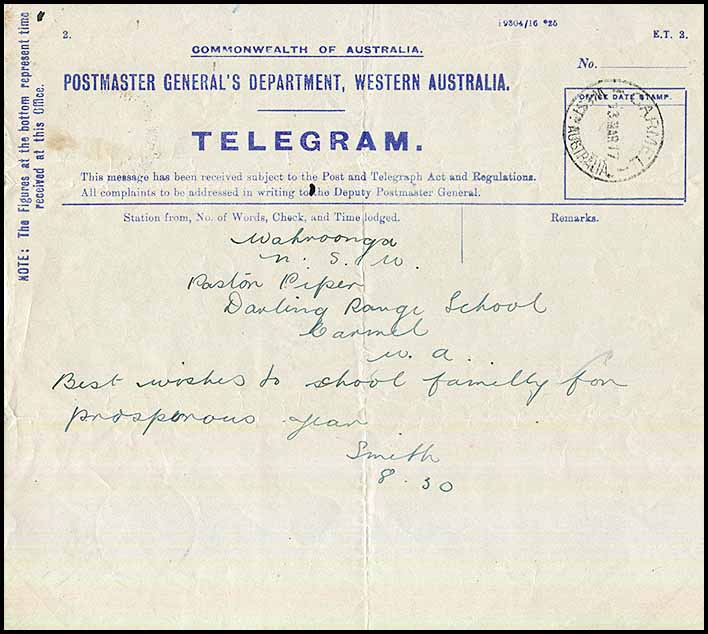 19304/16 *25
2.
E.T. 2.
COMMONWEALTH OF AUSTRALIA.
No.
POSTMASTER GENERAL'S DEPARTMENT, WESTERN AUSTRALIA.
OFFICE DATE STAMP.
CARMEL
23 MAR 17
WEST AUSTRALIA
TELEGRAM.
This message has been received subject to the Post and Telegraph Act and Regulations.
All complaints to be addressed in writing to the Deputy Postmaster General.
Station from, No. of Words, Check, and Time lodged.
Remarks.
Wahroonga
N. S. W.
Pastor Piper
Darling Range School
Carmel
W. A.
Best wishes to school familly for
prosperous year
Smith
8. 30
NOTE: The Figures at the bottom represent time
received at this Office.